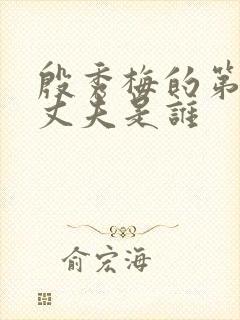 殷秀梅的第
丈夫是誰
俞宏海